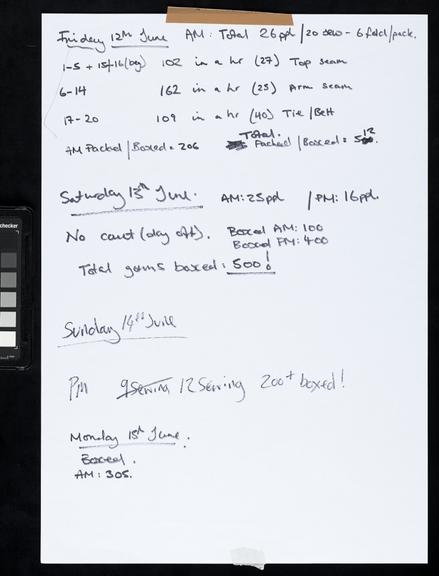 Friday 12th June AM: Total 26ppl / 20 sew - 6 fold/pack.
1-5 + 15/16(bg) 102 in a hr (27) Top seam
6-14 162 in a hr (25) Arm seam
17-20 109 in a hr (40) Tie/Belt
Total.
AM Packed/Boxed = 206 Packed/Boxed = 512
Saturday 13th June. AM: 25ppl / PM: 16ppl.
No count (day off). Boxed AM: 100
Boxed PM: 400
Total gowns boxed: 500!
Sunday 14th June
PM 9 Sewing 12 Sewing 200+ boxed!
Monday 15th June.
Boxed.
AM: 305.